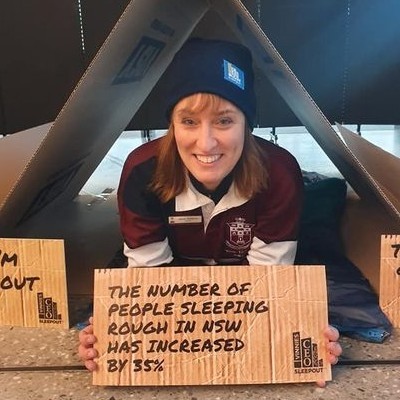 'M
OUT
VINNIES
CEO
SLEEPOUT
THE NUMBER OF
PEOPLE SLEEPING
ROUGH IN NSW
HAS INCREASED
BY 35%
VINNIES
CEO
SLEEPOUT
T